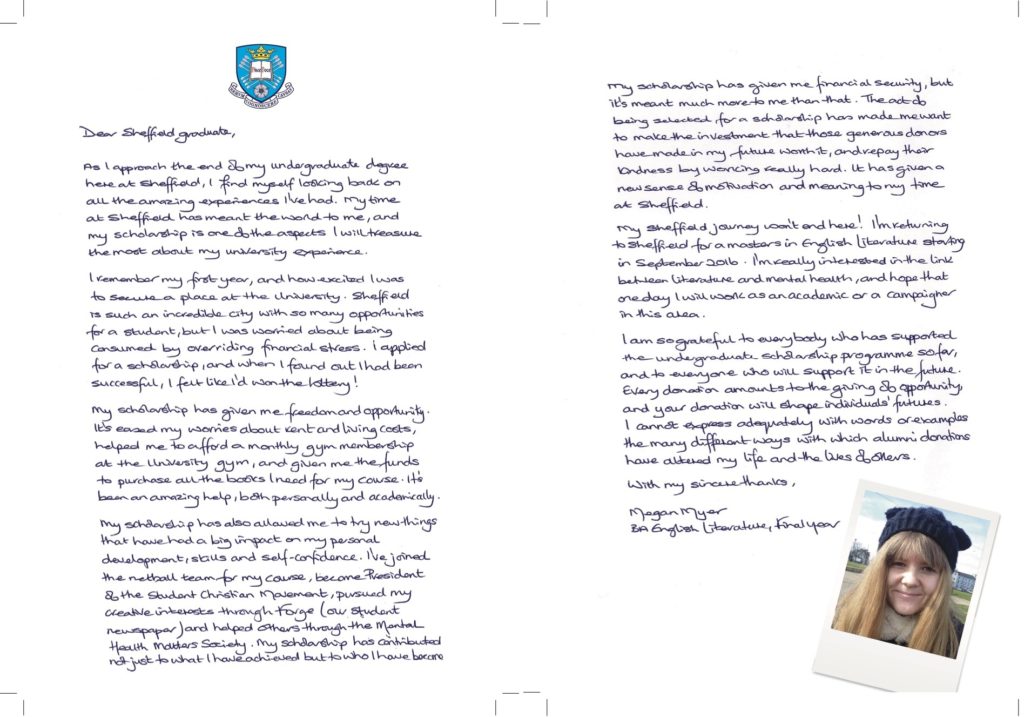 Dear Sheffield graduate,
As I approach the end of my undergraduate degree
here at Sheffield, I find myself looking back on
all the amazing experiences I've had. My time
at Sheffield has meant the world to me, and
my scholarship is one of the aspects I will treasure
the most about my university experience.
I remember my first year, and how excited I was
to secure a place at the University. Sheffield
is such an incredible city with so many opportunities
for a student, but I was worried about being
consumed by overriding financial stress. I applied
for a scholarship, and when I found out I had been
successful, I felt like I'd won the lottery!
My scholarship has given me freedom and opportunity.
It's eased my worries about rent and living costs,
helped me to afford a monthly gym membership
at the University gym, and given me the funds
to purchase all the books I need for my course. It's
been an amazing help, both personally and academically.
My scholarship has also allowed me to try new things
that have had a big impact on my personal
development, skills and self-confidence. I've joined
the netball team for my course, become President
of the Student Christian Movement, pursued my
creative interests through Forge (our student
newspaper) and helped others through the Mental
Health Matters Society. My scholarship has contributed
not just to what I have achieved but to who I have become
My scholarship has given me financial security, but
it's meant much more to me than that. The act of
being selected for a scholarship has made me want
to make the investment that those generous donors
have made in my future worth it, and repay their
kindness by working really hard. It has given a
new sense of motivation and meaning to my time
at Sheffield.
My Sheffield journey won't end here! I'm returning
to Sheffield for a masters in English Literature starting
in September 2016. I'm really interested in the link
between literature and mental health, and hope that
one day I will work as an academic or a campaigner
in this area.
I am so grateful to everybody who has supported
the undergraduate scholarship programme so far,
and to everyone who will support it in the future.
Every donation amounts to the giving of opportunity,
and your donation will shape individuals' futures.
I cannot express adequately with words or examples
the many different ways with which alumni donations
have altered my life and the lives of others.
With my sincere thanks,
Megan Myer
BA English Literature, Final Year